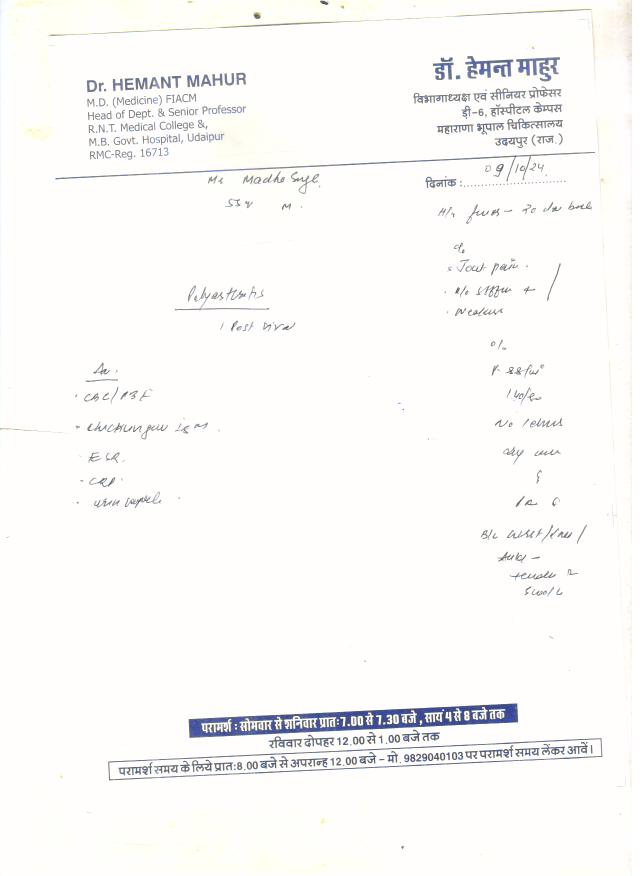 Dr. HEMANT MAHUR
M.D. (Medicine) FIACM
Head of Dept. & Senior Professor
R.N.T. Medical College &,
M.B. Govt. Hospital, Udaipur
RMC-Reg. 16713
डॉ. हेमन्त माहुर
विभागाध्यक्ष एवं सीनियर प्रोफेसर
डी-6, हॉस्पीटल केम्पस
महाराणा भूपाल चिकित्सालय
उदयपुर (राज.)
दिनांक : 09/10/24
Mr Madho
55 y M.
H/o fever - 20 back
c/o
Joint pain.
Weakness
Polyarthritis
Post viral
Adv.
CBC/PBF
Chickungun IgM.
ESR.
CRP.
Urin
o/e
P- 88/m
140/80
No
B/L wrist/knee/
Ankle -
tender
परामर्श : सोमवार से शनिवार प्रातः7.00 से 7.30 बजे , सायं 4 से 8 बजे तक
रविवार दोपहर 12.00 से 1.00 बजे तक
परामर्श समय के लिये प्रात:8.00 बजे से अपरान्ह 12.00 बजे - मो. 9829040103 पर परामर्श समय लेंकर आवें।